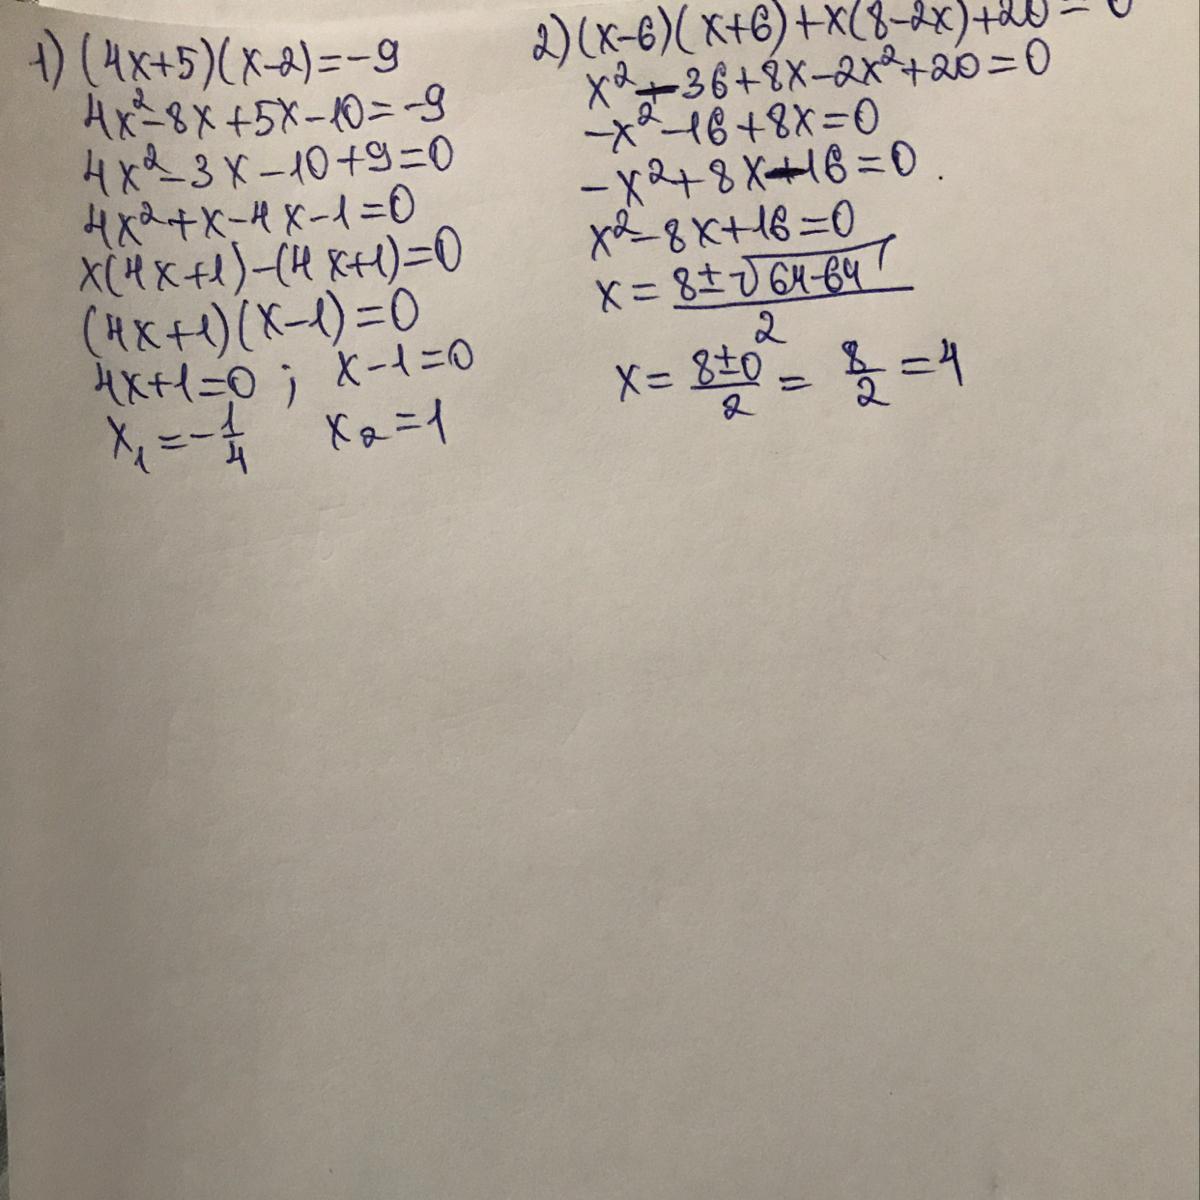 1) (4x+5)(x-2)=-9
4x²-8x+5x-10=-9
4x²-3x-10+9=0
4x²+x-4x-1=0
x(4x+1)-(4x+1)=0
(4x+1)(x-1)=0
4x+1=0 ; x-1=0
x₁=-1/4 x₂=1
2) (x-6)(x+6)+x(8-2x)+20=0
x²-36+8x-2x²+20=0
-x²-16+8x=0
-x²+8x-16=0
x²-8x+16=0
x=(8±√(64-64))/2
x=(8±0)/2=8/2=4